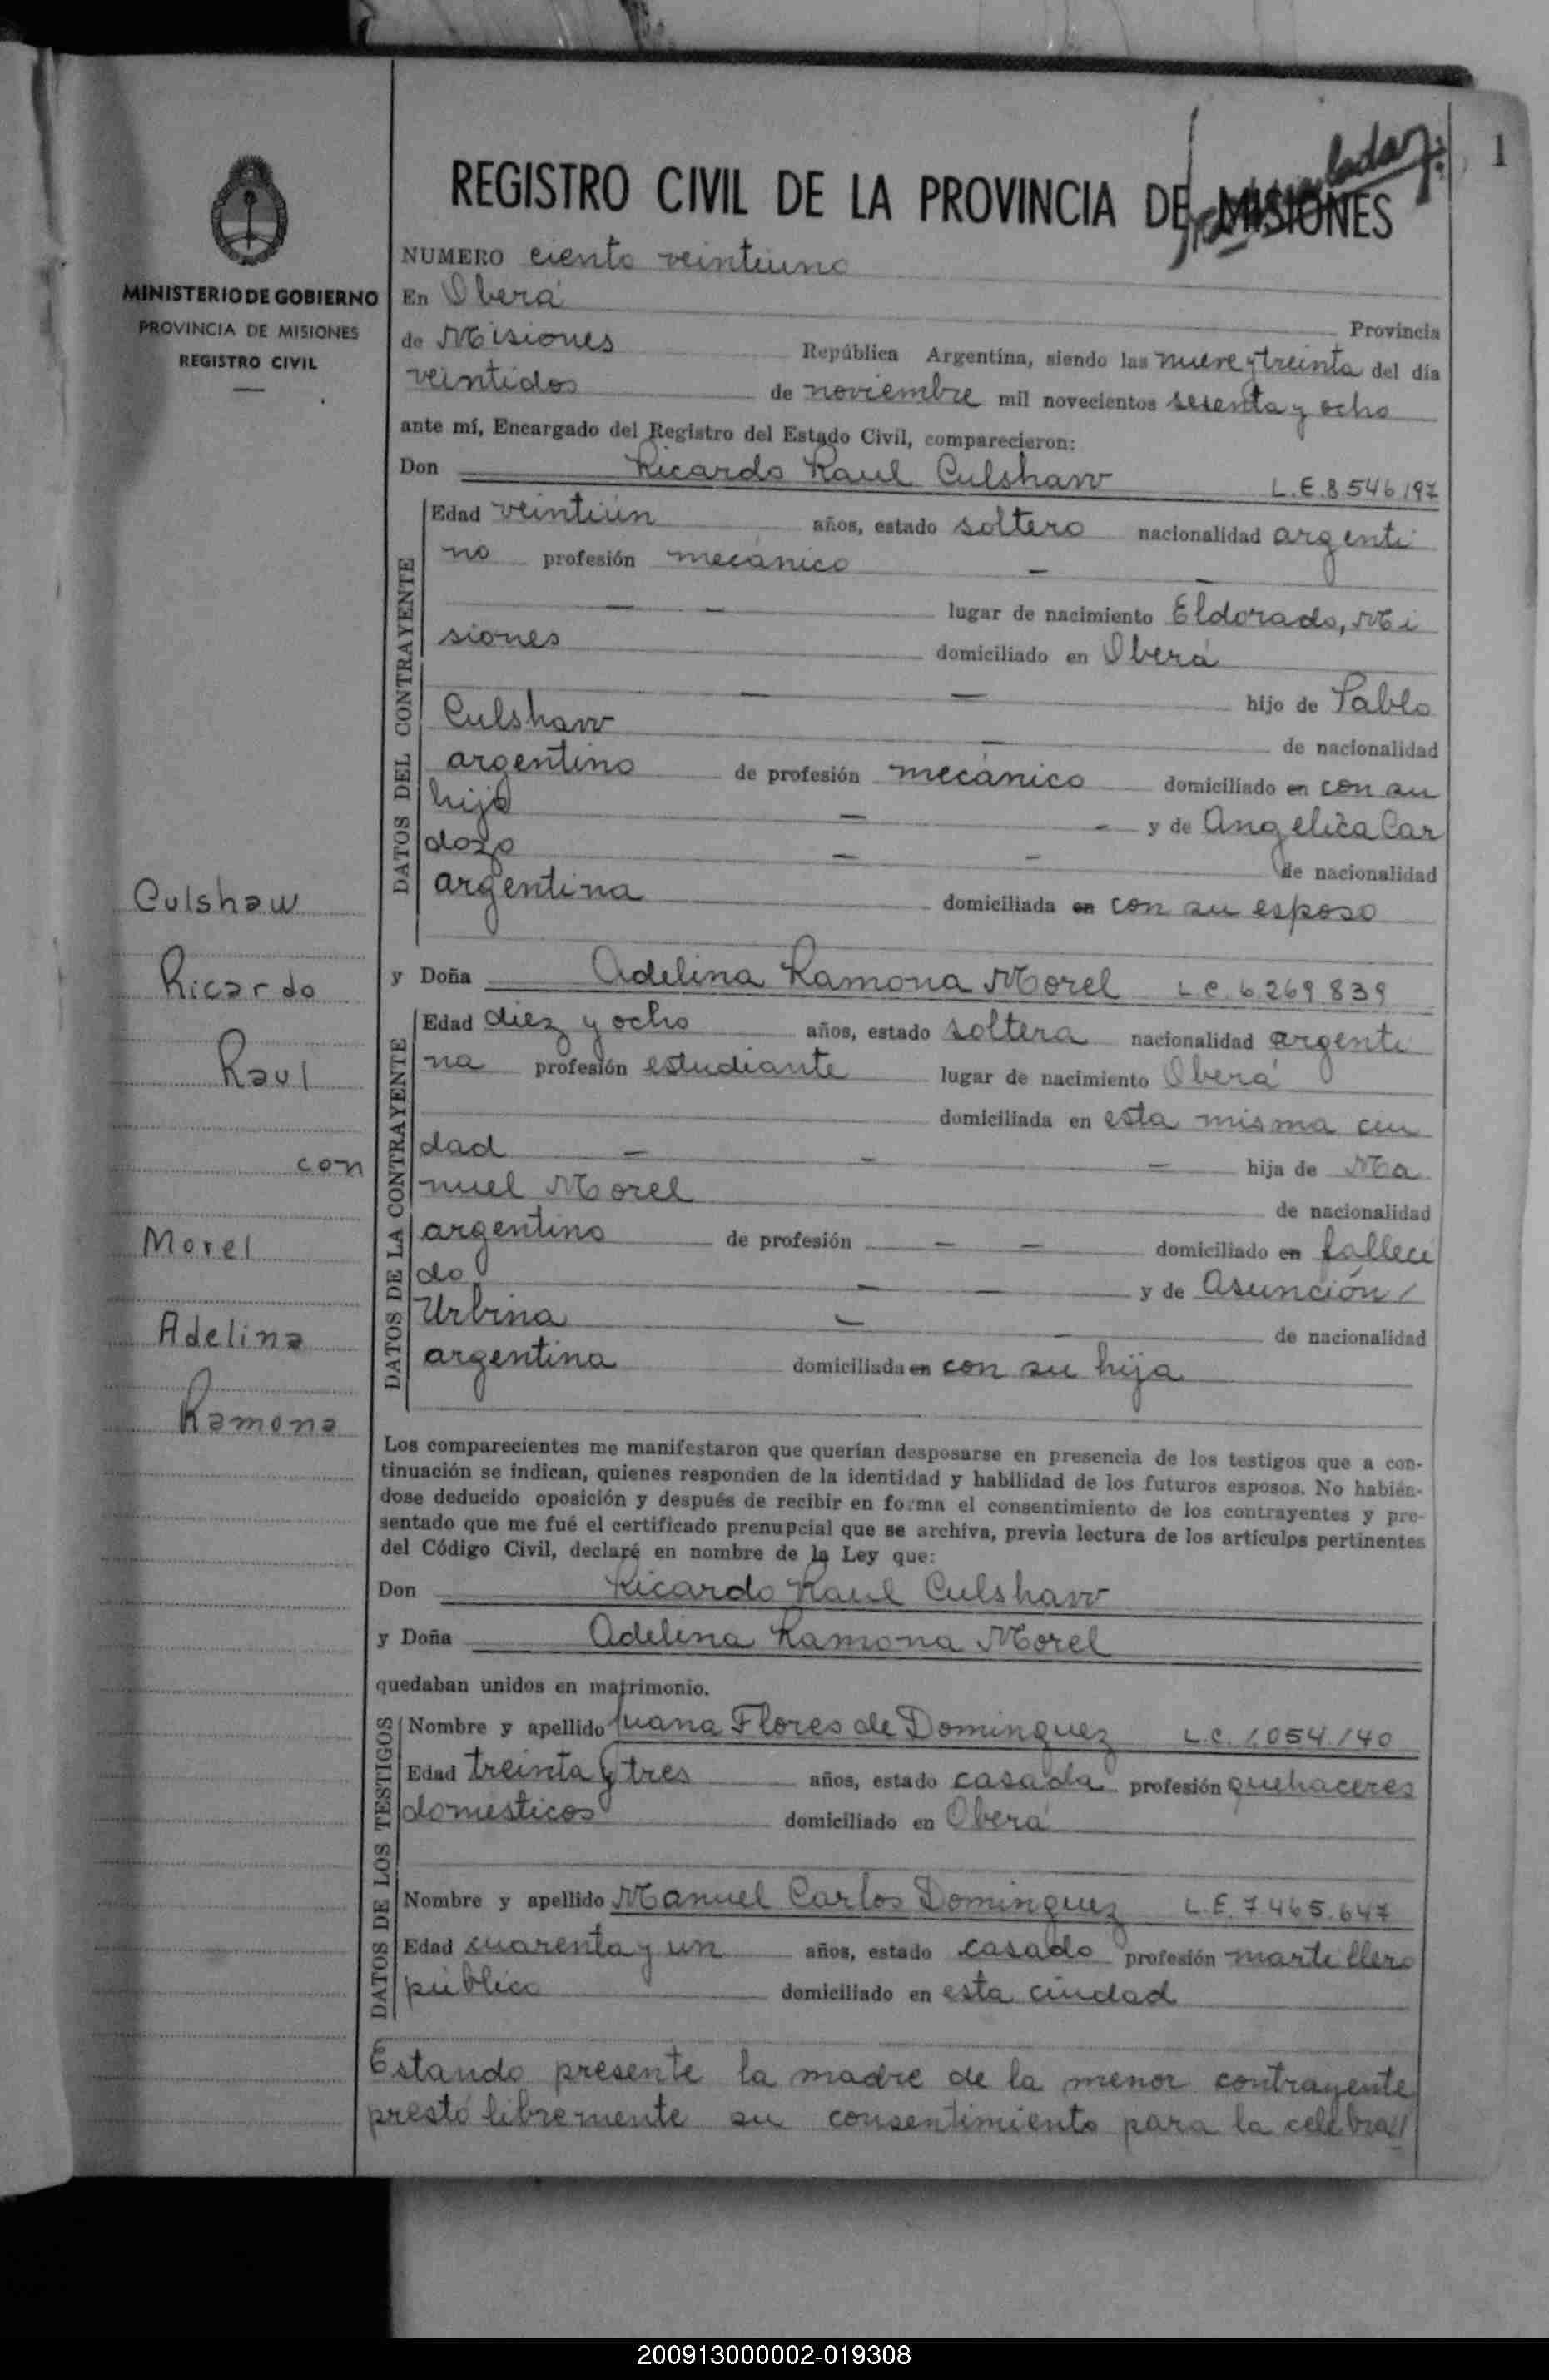 1
REGISTRO CIVIL DE LA PROVINCIA DE MISIONES
MINISTERIO DE GOBIERNO
PROVINCIA DE MISIONES
REGISTRO CIVIL
NUMERO ciento veintiuno
En Oberá Provincia
de Misiones República Argentina, siendo las nueve y treinta del día
veintidos de noviembre mil novecientos sesenta y ocho
ante mí, Encargado del Registro del Estado Civil, comparecieron:
Don Ricardo Raul Culshaw L.E. 8.546.197
DATOS DEL CONTRAYENTE
Edad veintiún años, estado soltero nacionalidad argenti
no profesión mecánico —
— — lugar de nacimiento Eldorado, Mi
siones domiciliado en Oberá
— — hijo de Pablo
Culshaw — de nacionalidad
argentino de profesión mecánico domiciliado en con su
hijo — — y de Angelica Car
dozo — — de nacionalidad
argentina domiciliada en con su esposo
Culshaw
Ricardo
Raul
con
Morel
Adelina
Ramona
y Doña Adelina Ramona Morel L.C. 6.269.839
DATOS DE LA CONTRAYENTE
Edad diez y ocho años, estado soltera nacionalidad argenti
na profesión estudiante lugar de nacimiento Oberá
domiciliada en esta misma ciu
dad — — — hija de Ma
nuel Morel de nacionalidad
argentino de profesión — — domiciliado en falleci
do — — y de Asunción /
Urbina — — de nacionalidad
argentina domiciliada en con su hija
Los comparecientes me manifestaron que querían desposarse en presencia de los testigos que a con-
tinuación se indican, quienes responden de la identidad y habilidad de los futuros esposos. No habién-
dose deducido oposición y después de recibir en forma el consentimiento de los contrayentes y pre-
sentado que me fué el certificado prenupcial que se archiva, previa lectura de los artículos pertinentes
del Código Civil, declaré en nombre de la Ley que:
Don Ricardo Raul Culshaw
y Doña Adelina Ramona Morel
quedaban unidos en matrimonio.
DATOS DE LOS TESTIGOS
Nombre y apellido Juana Flores de Dominguez L.C. 1.054.140
Edad treinta y tres años, estado casada profesión quehaceres
domesticos domiciliado en Oberá
Nombre y apellido Manuel Carlos Dominguez L.E. 7.465.647
Edad cuarenta y un años, estado casado profesión martillero
público domiciliado en esta ciudad
Estando presente la madre de la menor contrayente
prestó libremente su consentimiento para la celebra//
200913000002-019308